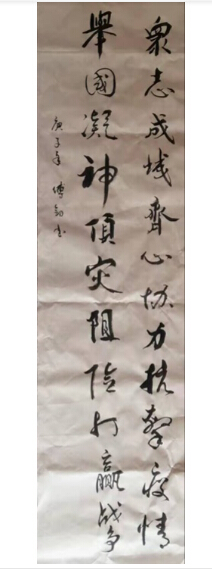 眾志成城齊心協力抗擊疫情
舉國凝神頂灾阻險打贏战争
庚子年 傅